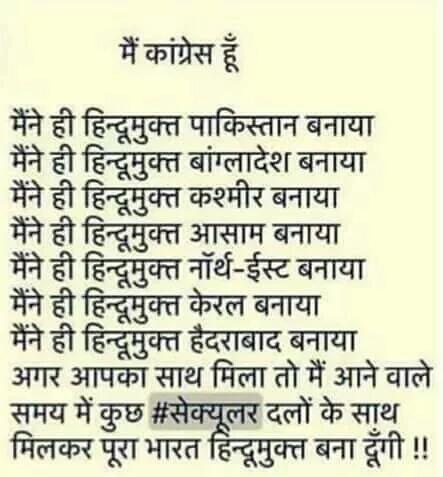 मैं कांग्रेस हूँ
मैंने ही हिन्दूमुक्त पाकिस्तान बनाया
मैंने ही हिन्दूमुक्त बांग्लादेश बनाया
मैंने ही हिन्दूमुक्त कश्मीर बनाया
मैंने ही हिन्दूमुक्त आसाम बनाया
मैंने ही हिन्दूमुक्त नॉर्थ-ईस्ट बनाया
मैंने ही हिन्दूमुक्त केरल बनाया
मैंने ही हिन्दूमुक्त हैदराबाद बनाया
अगर आपका साथ मिला तो मैं आने वाले
समय में कुछ #सेक्यूलर दलों के साथ
मिलकर पूरा भारत हिन्दूमुक्त बना दूँगी !!